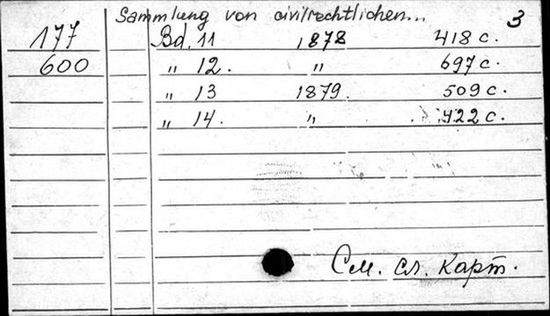 Sammlung von civilrechtlichen... 3
177 Bd. 11 1878 418 с.
600 " 12. " 697 с.
" 13 1879. 509 с.
" 14. " 422 с.
См. сл. карт.